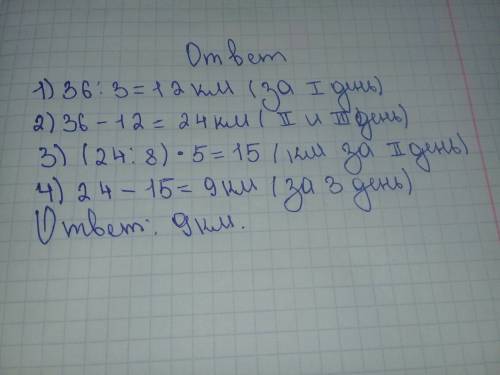 Ответ
1) 36 : 3 = 12 км (за I день)
2) 36 - 12 = 24 км ( II и III день)
3) (24 : 8) · 5 = 15 (км за II день)
4) 24 - 15 = 9 км (за 3 день)
Ответ: 9 км.